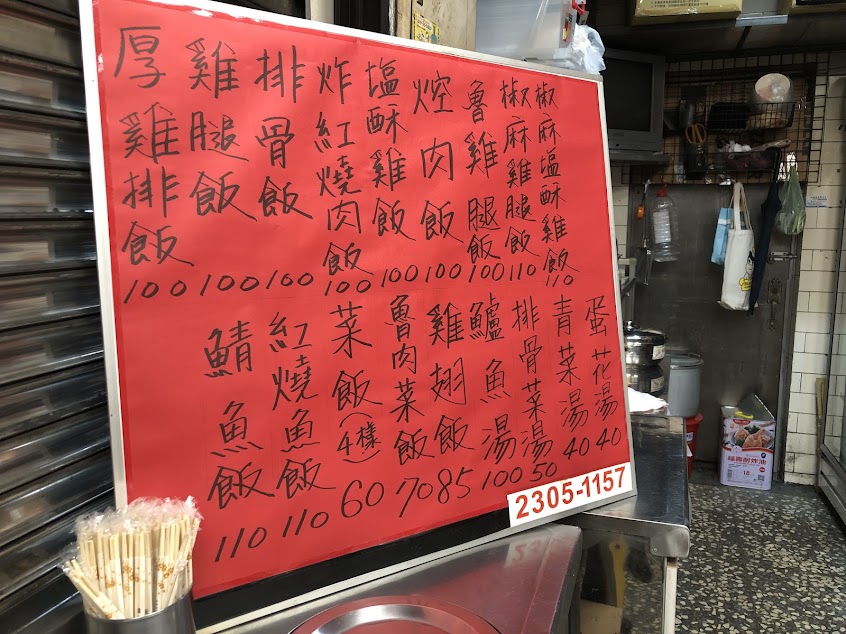 厚雞排飯100
雞腿飯100
排骨飯100
炸紅燒肉飯100
塩酥雞飯100
焢肉飯100
魯雞腿飯100
椒麻雞腿飯110
椒麻塩酥雞飯110
鯖魚飯110
紅燒魚飯110
菜飯(4樣)60
魯肉菜飯70
雞翅飯85
鱸魚湯100
排骨菜湯50
青菜湯40
蛋花湯40
2305-1157
福壽耐炸油
18